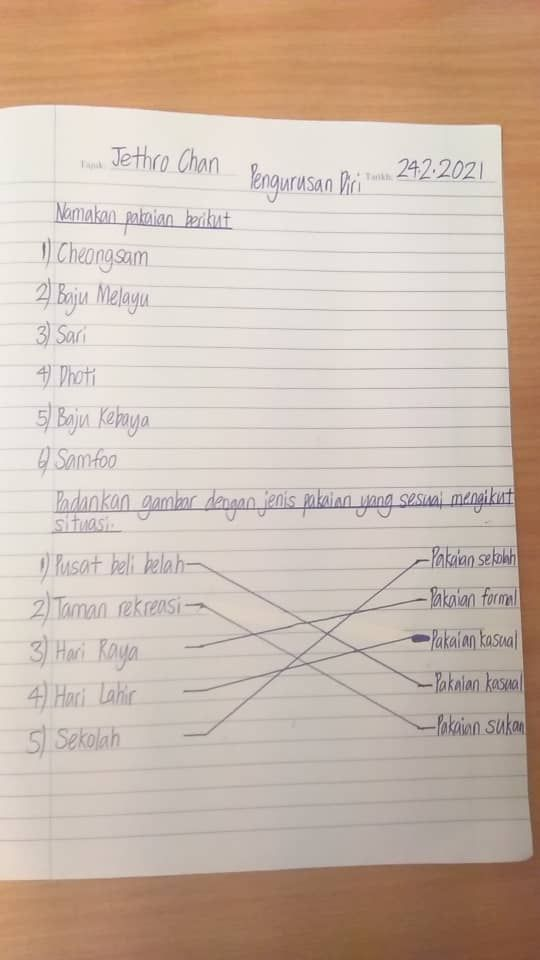 Tajuk: Jethro Chan Pengurusan Diri Tarikh: 24.2.2021
Namakan pakaian berikut
1) Cheongsam
2) Baju Melayu
3) Sari
4) Dhoti
5) Baju Kebaya
6) Samfoo
Padankan gambar dengan jenis pakaian yang sesuai mengikut
situasi.
1) Pusat beli belah Pakaian sekolah
2) Taman rekreasi Pakaian formal
3) Hari Raya Pakaian kasual
4) Hari Lahir Pakaian kasual
5) Sekolah Pakaian sukan